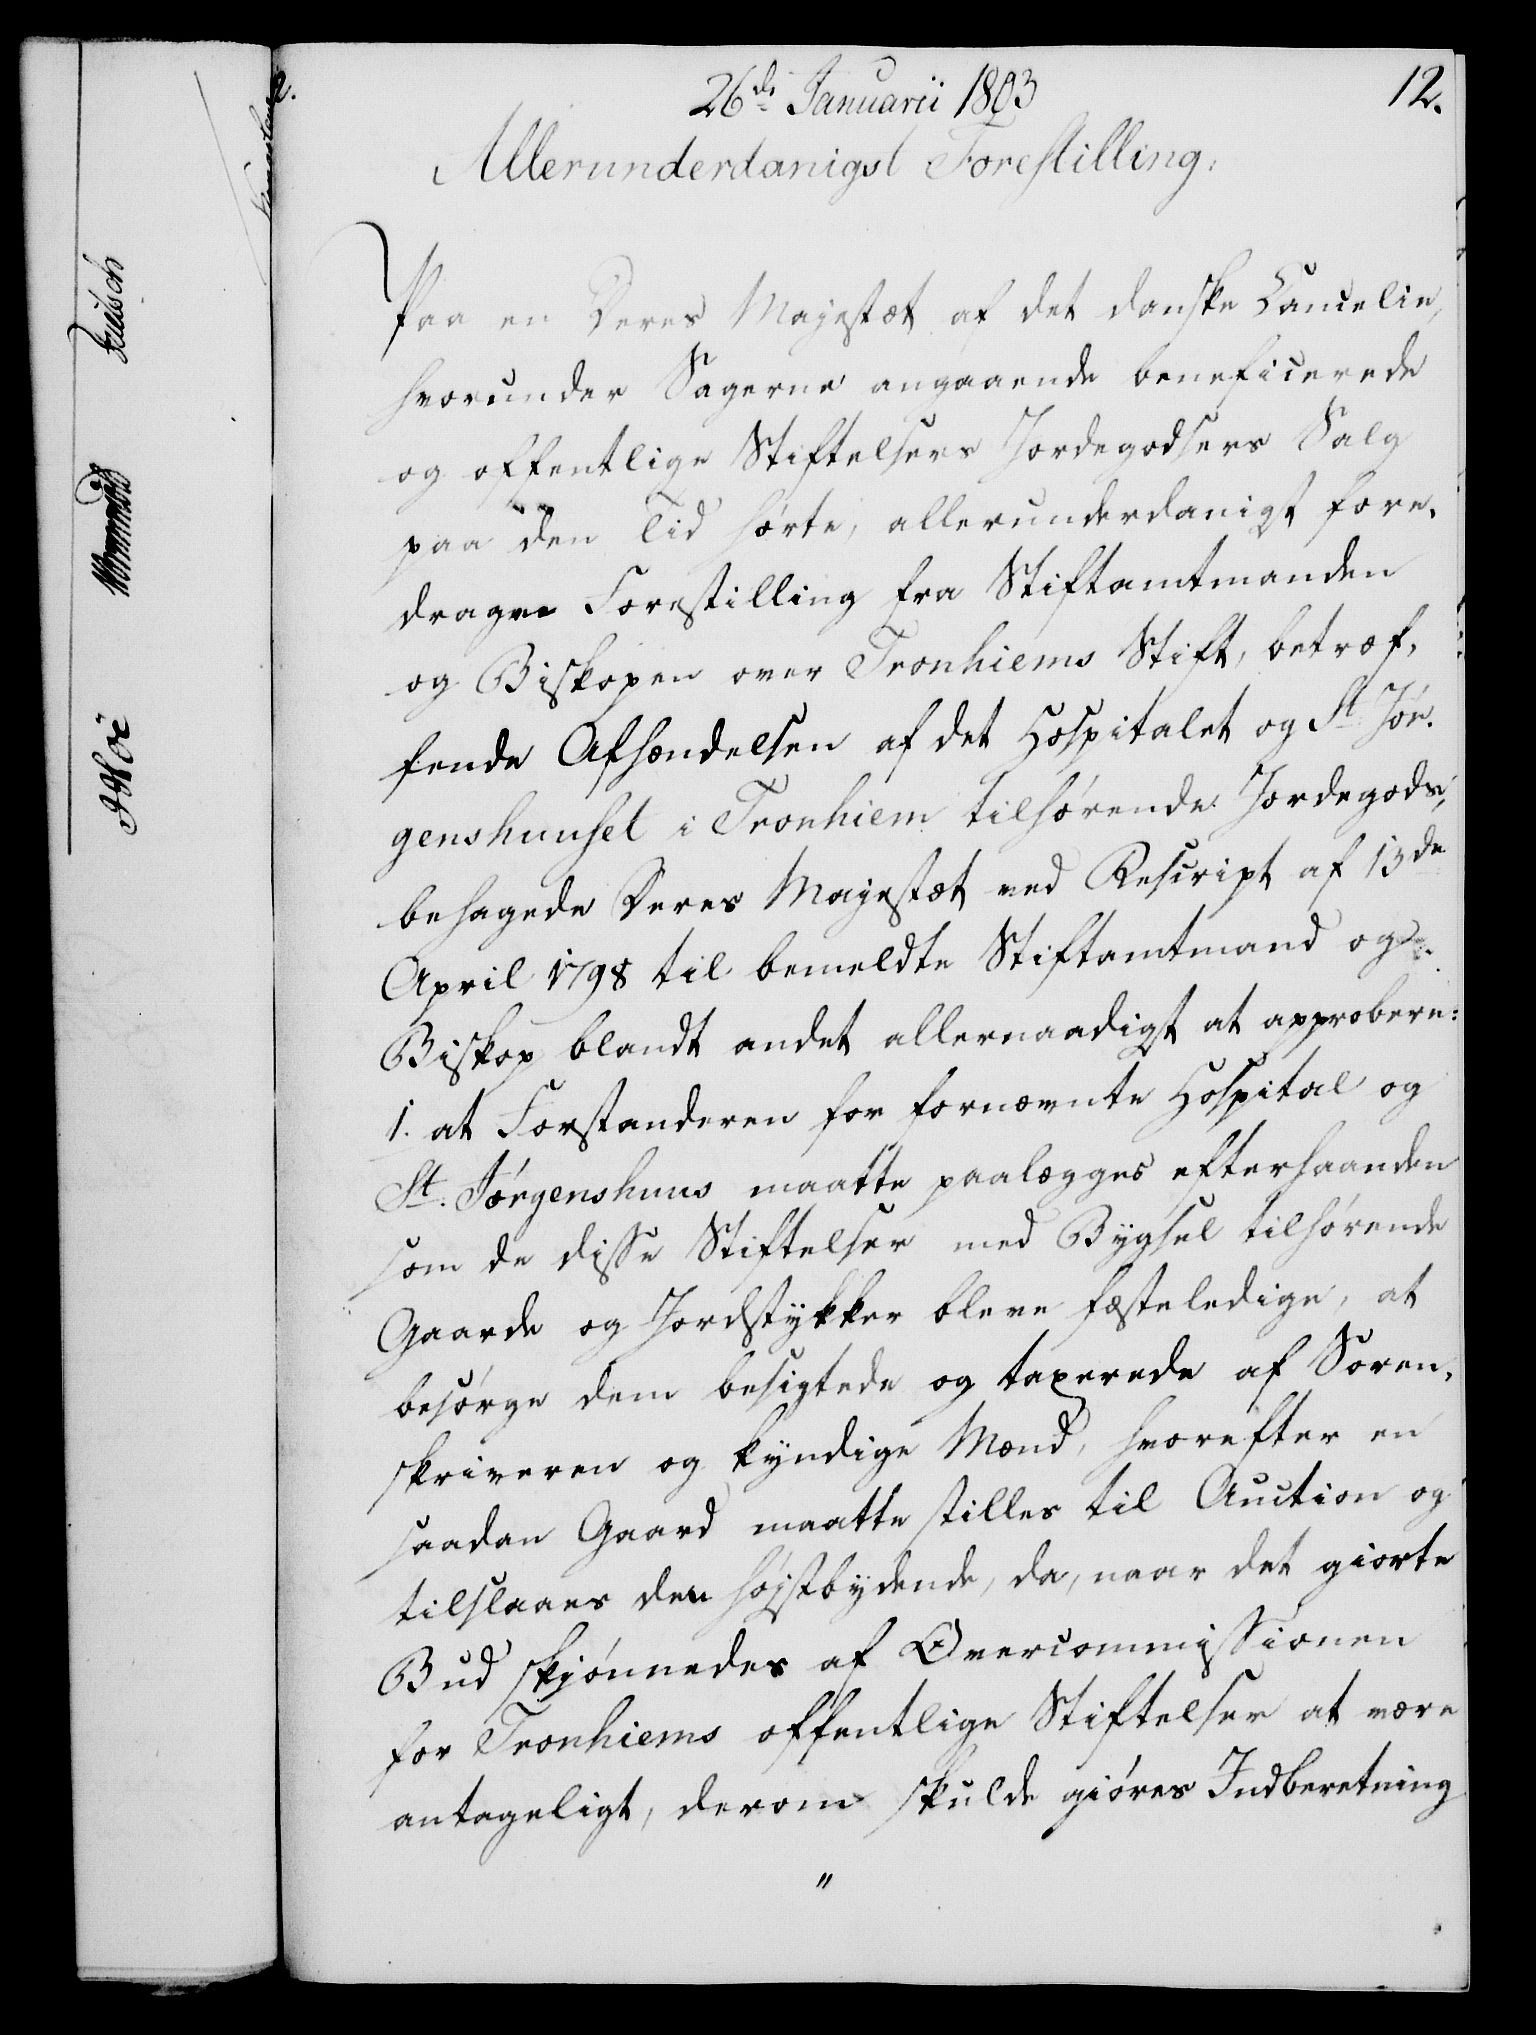 26de Januarii 1803
12.
Allerunderdanigst Forestilling.
Paa en Deres Majestæt af det danske Cancelie,
hvorunder Sagerne angaaende beneficerede
og offentlige Stiftelsers Jordegodsers Salg
paa den Tid hørte, allerunderdanigst fore-
dragne Forestilling fra Stiftamtmanden
og Biskopen over Tronhiems Stift, betræf-
fende Afhændelsen af det Hospitalet og St Jør-
genshuuset i Tronhiem tilhørende Jordegods,
behagede Deres Majestæt ved Rescript af 13de
April 1798 til bemeldte Stiftamtmand og
Biskop blandt andet allernaadigst at approbere:
1. at Forstanderen for fornævnte Hospital og
St. Jørgenshuus maatte paalægges efterhaanden
som de disse Stiftelser med Bygsel tilhørende
Gaarde og Jordstykker bleve fæsteledige, at
besørge dem besigtede og taxerede af Soren-
skriveren og kyndige Mænd, hvorefter en
saadan Gaard maatte stilles til Auction og
tilslaaes den højstbydende, da, naar det giorte
Bud skjønnedes af Overcommissionen
for Tronhiems offentlige Stiftelser at være
antageligt, derom skulde giøres Indberetning
"